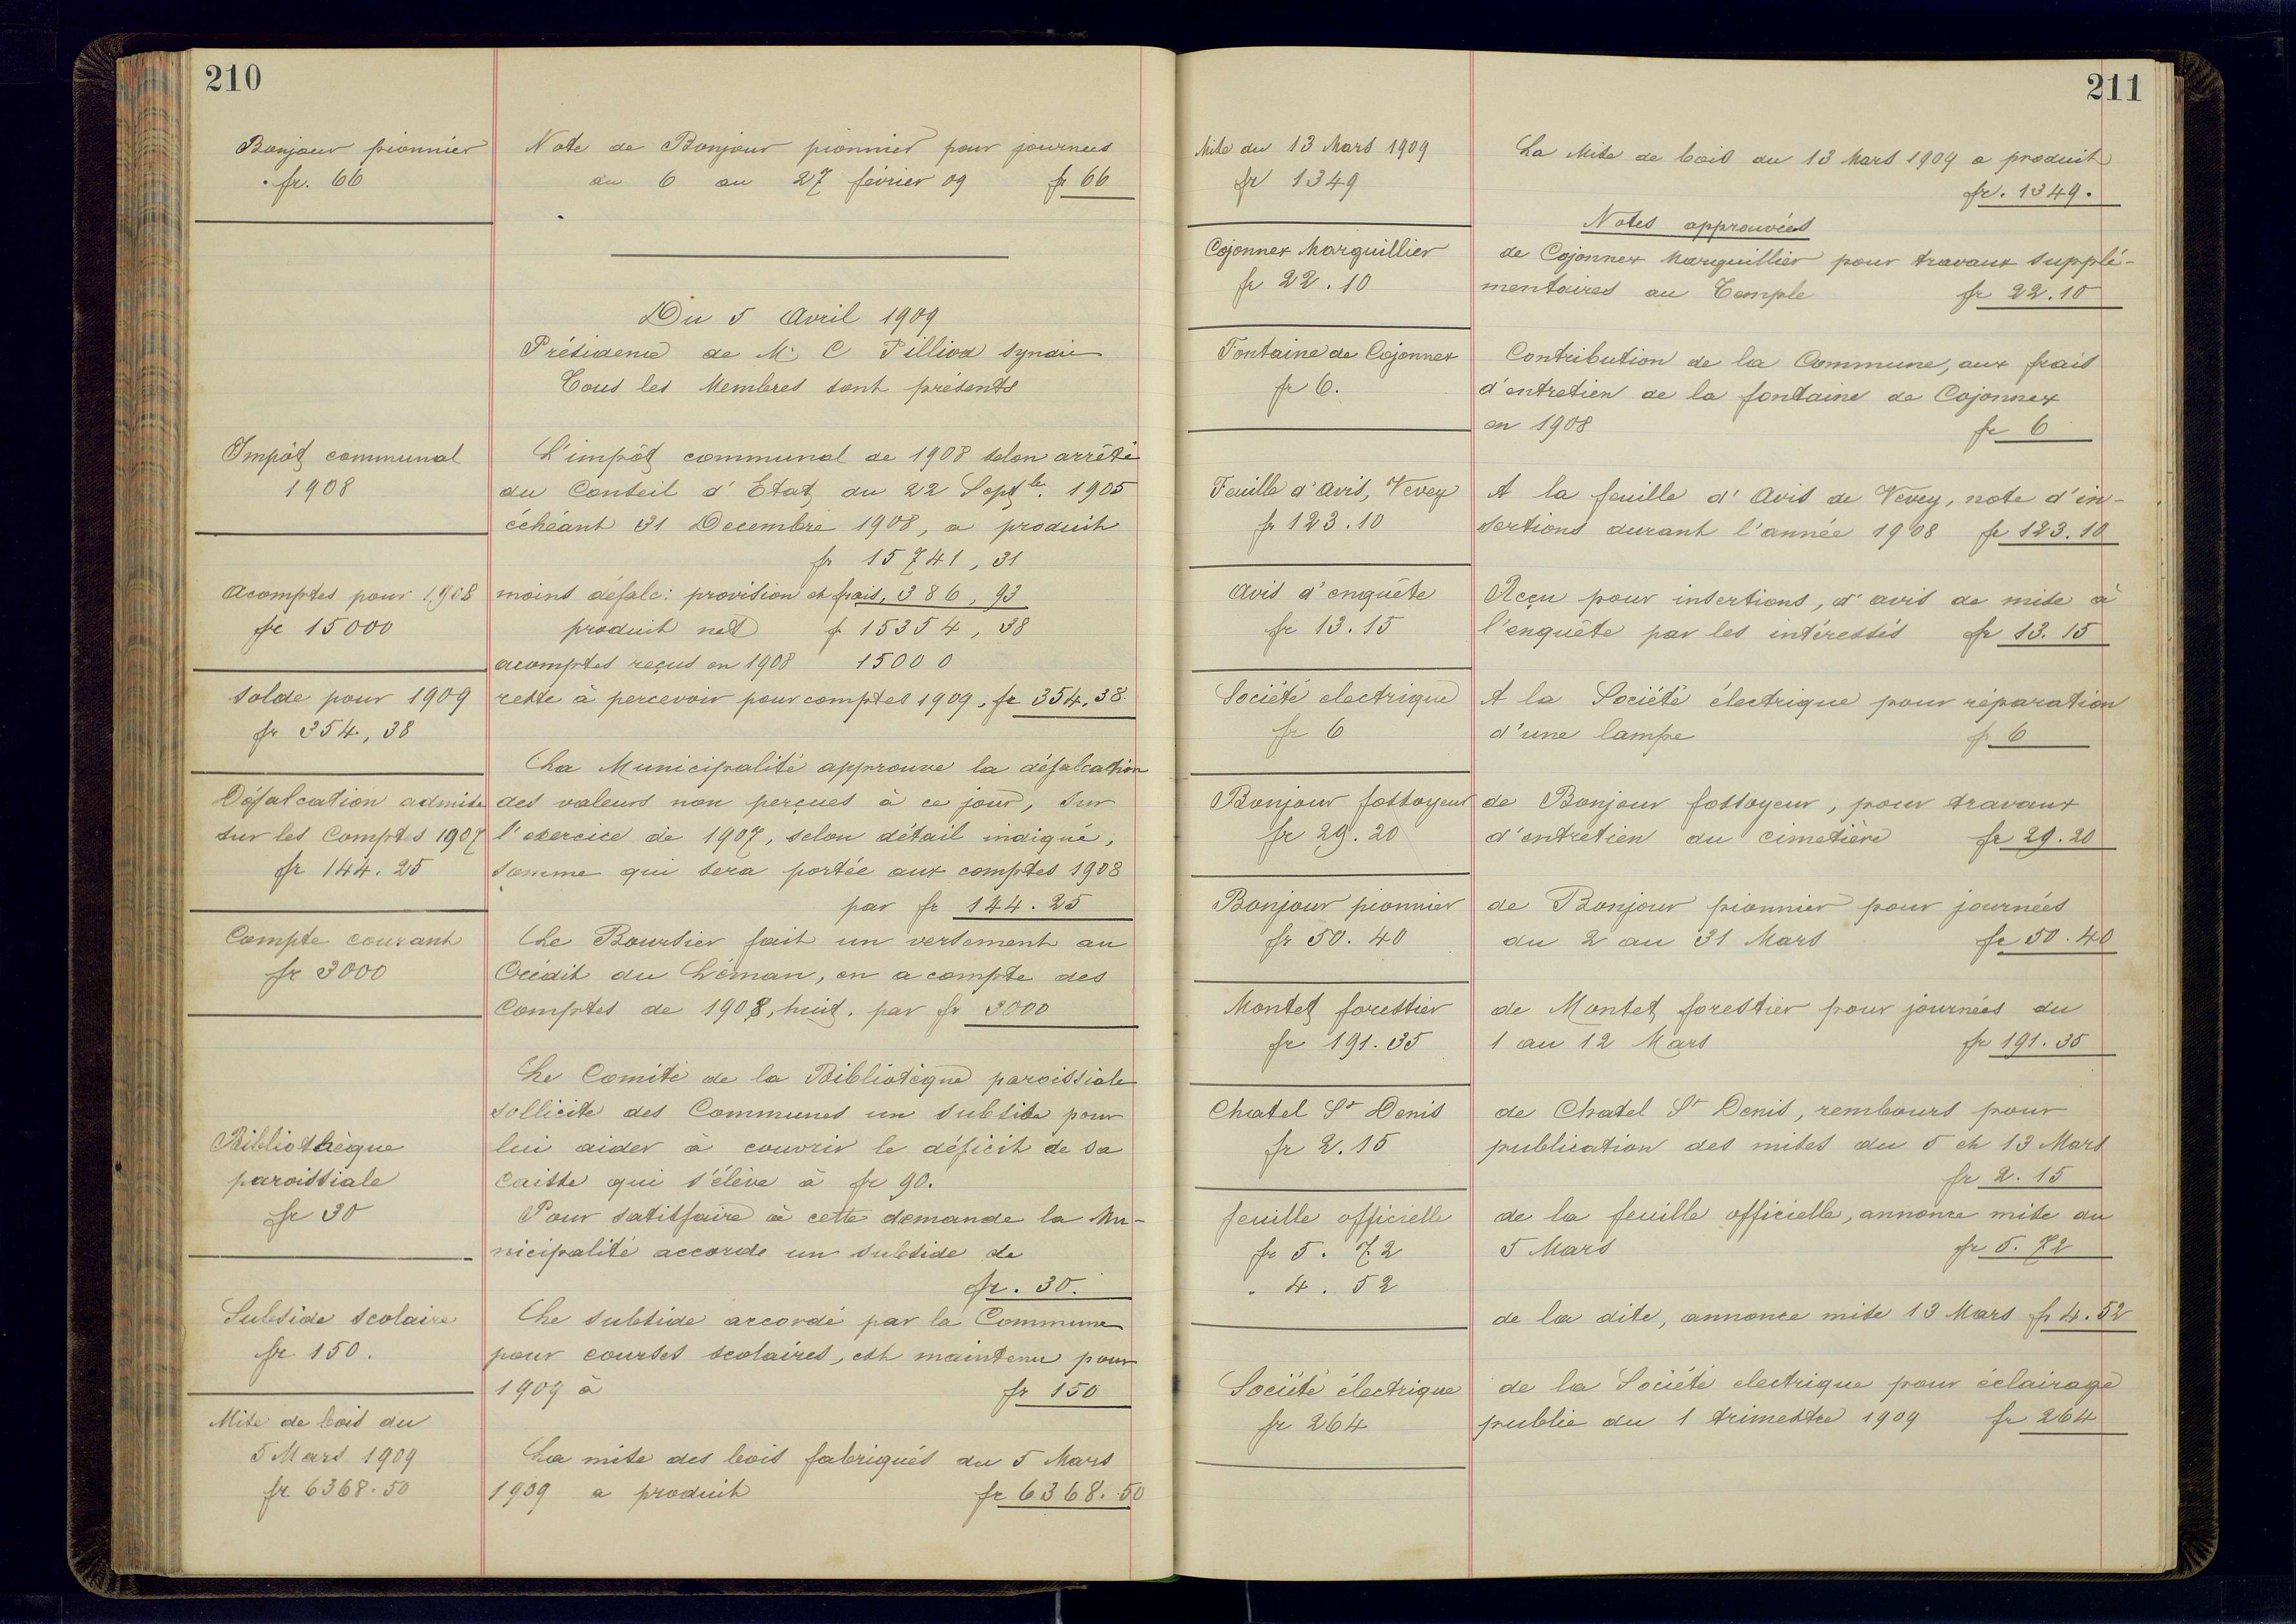 210
Bonjour pionnier
fr. 66
Note de Bonjour pionnier pour journees
du 6 au 27 février 09 fr 66
Du 5 Avril 1909
Présidence de Mr C Pilliod syndic
Tous les Membres sont présents
Impôt communal
1908
L'impôt communal de 1908 selon arrêté
du Conseil d'Etat du 22 Septbr. 1905
échéant 31 Decembre 1908, a produit
fr 15741,31
Acomptes pour 1908
fr 15000
moins défalc: provision et frais, 386,93
produit net f 15354,38
acomptes reçus en 1908 15000
Solde pour 1909
fr 354,38
reste à percevoir pour comptes 1909, fr 354,38
Défalcation admise
sur les Comptes 1907
fr 144.25
La Municipalité approuve la défalcation
des valeurs non perçues à ce jour, sur
l'exercice de 1907, selon détail indiqué,
somme qui sera portée aux comptes 1908
par fr 144.25
Compte courant
fr 3000
Le Boursier fait un versement au
Crédit du Léman, en acompte des
Comptes de 1908, huit, par fr 3000
Bibliothèque
paroissiale
fr 30
Le Comité de la Bibliotèque paroissiale
sollicite des Communes un subside pour
lui aider à couvrir le déficit de sa
caisse qui s'élève à fr 90.
Pour satisfaire à cette demande la Mu-
nicipalité accorde un subside de
fr. 30.
Subside scolaire
fr 150.
Le subside accordé par la Commune
pour courses scolaires, est maintenu pour
1909 à fr 150
Mise de bois du
5 Mars 1909
fr 6368.50
La mise des bois fabriqués du 5 Mars
1909 a produit fr 6368.50
211
Mise du 13 Mars 1909
fr 1349
La Mise de bois du 13 Mars 1909 a produit
fr. 1349.
Notes approuvées
Cojonnex Marguillier
fr 22.10
de Cojonnex Marguillier pour travaux supplé-
mentaires au Temple fr 22.10
Fontaine de Cojonnex
fr 6.
Contribution de la Commune, aux frais
d'entretien de la fontaine de Cojonnex
en 1908 fr 6
Feuille d'Avis, Vevey
fr 123.10
A la feuille d'Avis de Vevey, note d'in-
sertions durant l'année 1908 fr 123.10
Avis d'enquête
fr 13.15
Reçu pour insertions, d'avis de mise à
l'enquête par les intéressés fr 13.15
Société electrique
fr 6
A la Société électrique pour réparation
d'une lampe fr 6
Bonjour fossoyeur
fr 29.20
de Bonjour fossoyeur, pour travaux
d'entretien du cimetière fr 29.20
Bonjour pionnier
fr 50.40
de Bonjour pionnier pour journées
du 2 au 31 Mars fr 50.40
Montet forestier
fr 191.35
de Montet forestier pour journées du
1 au 12 Mars fr 191.35
Chatel St Denis
fr 2.15
de Chatel St Denis, rembours pour
publication des mises du 5 et 13 Mars
fr 2.15
feuille officielle
fr 5.72
. 4.52
de la feuille officielle, annonce mise du
5 Mars fr 5.72
de la dite, annonce mise 13 Mars fr 4.52
Société électrique
fr 264
de la Société electrique pour éclairage
public du 1 trimestre 1909 fr 264